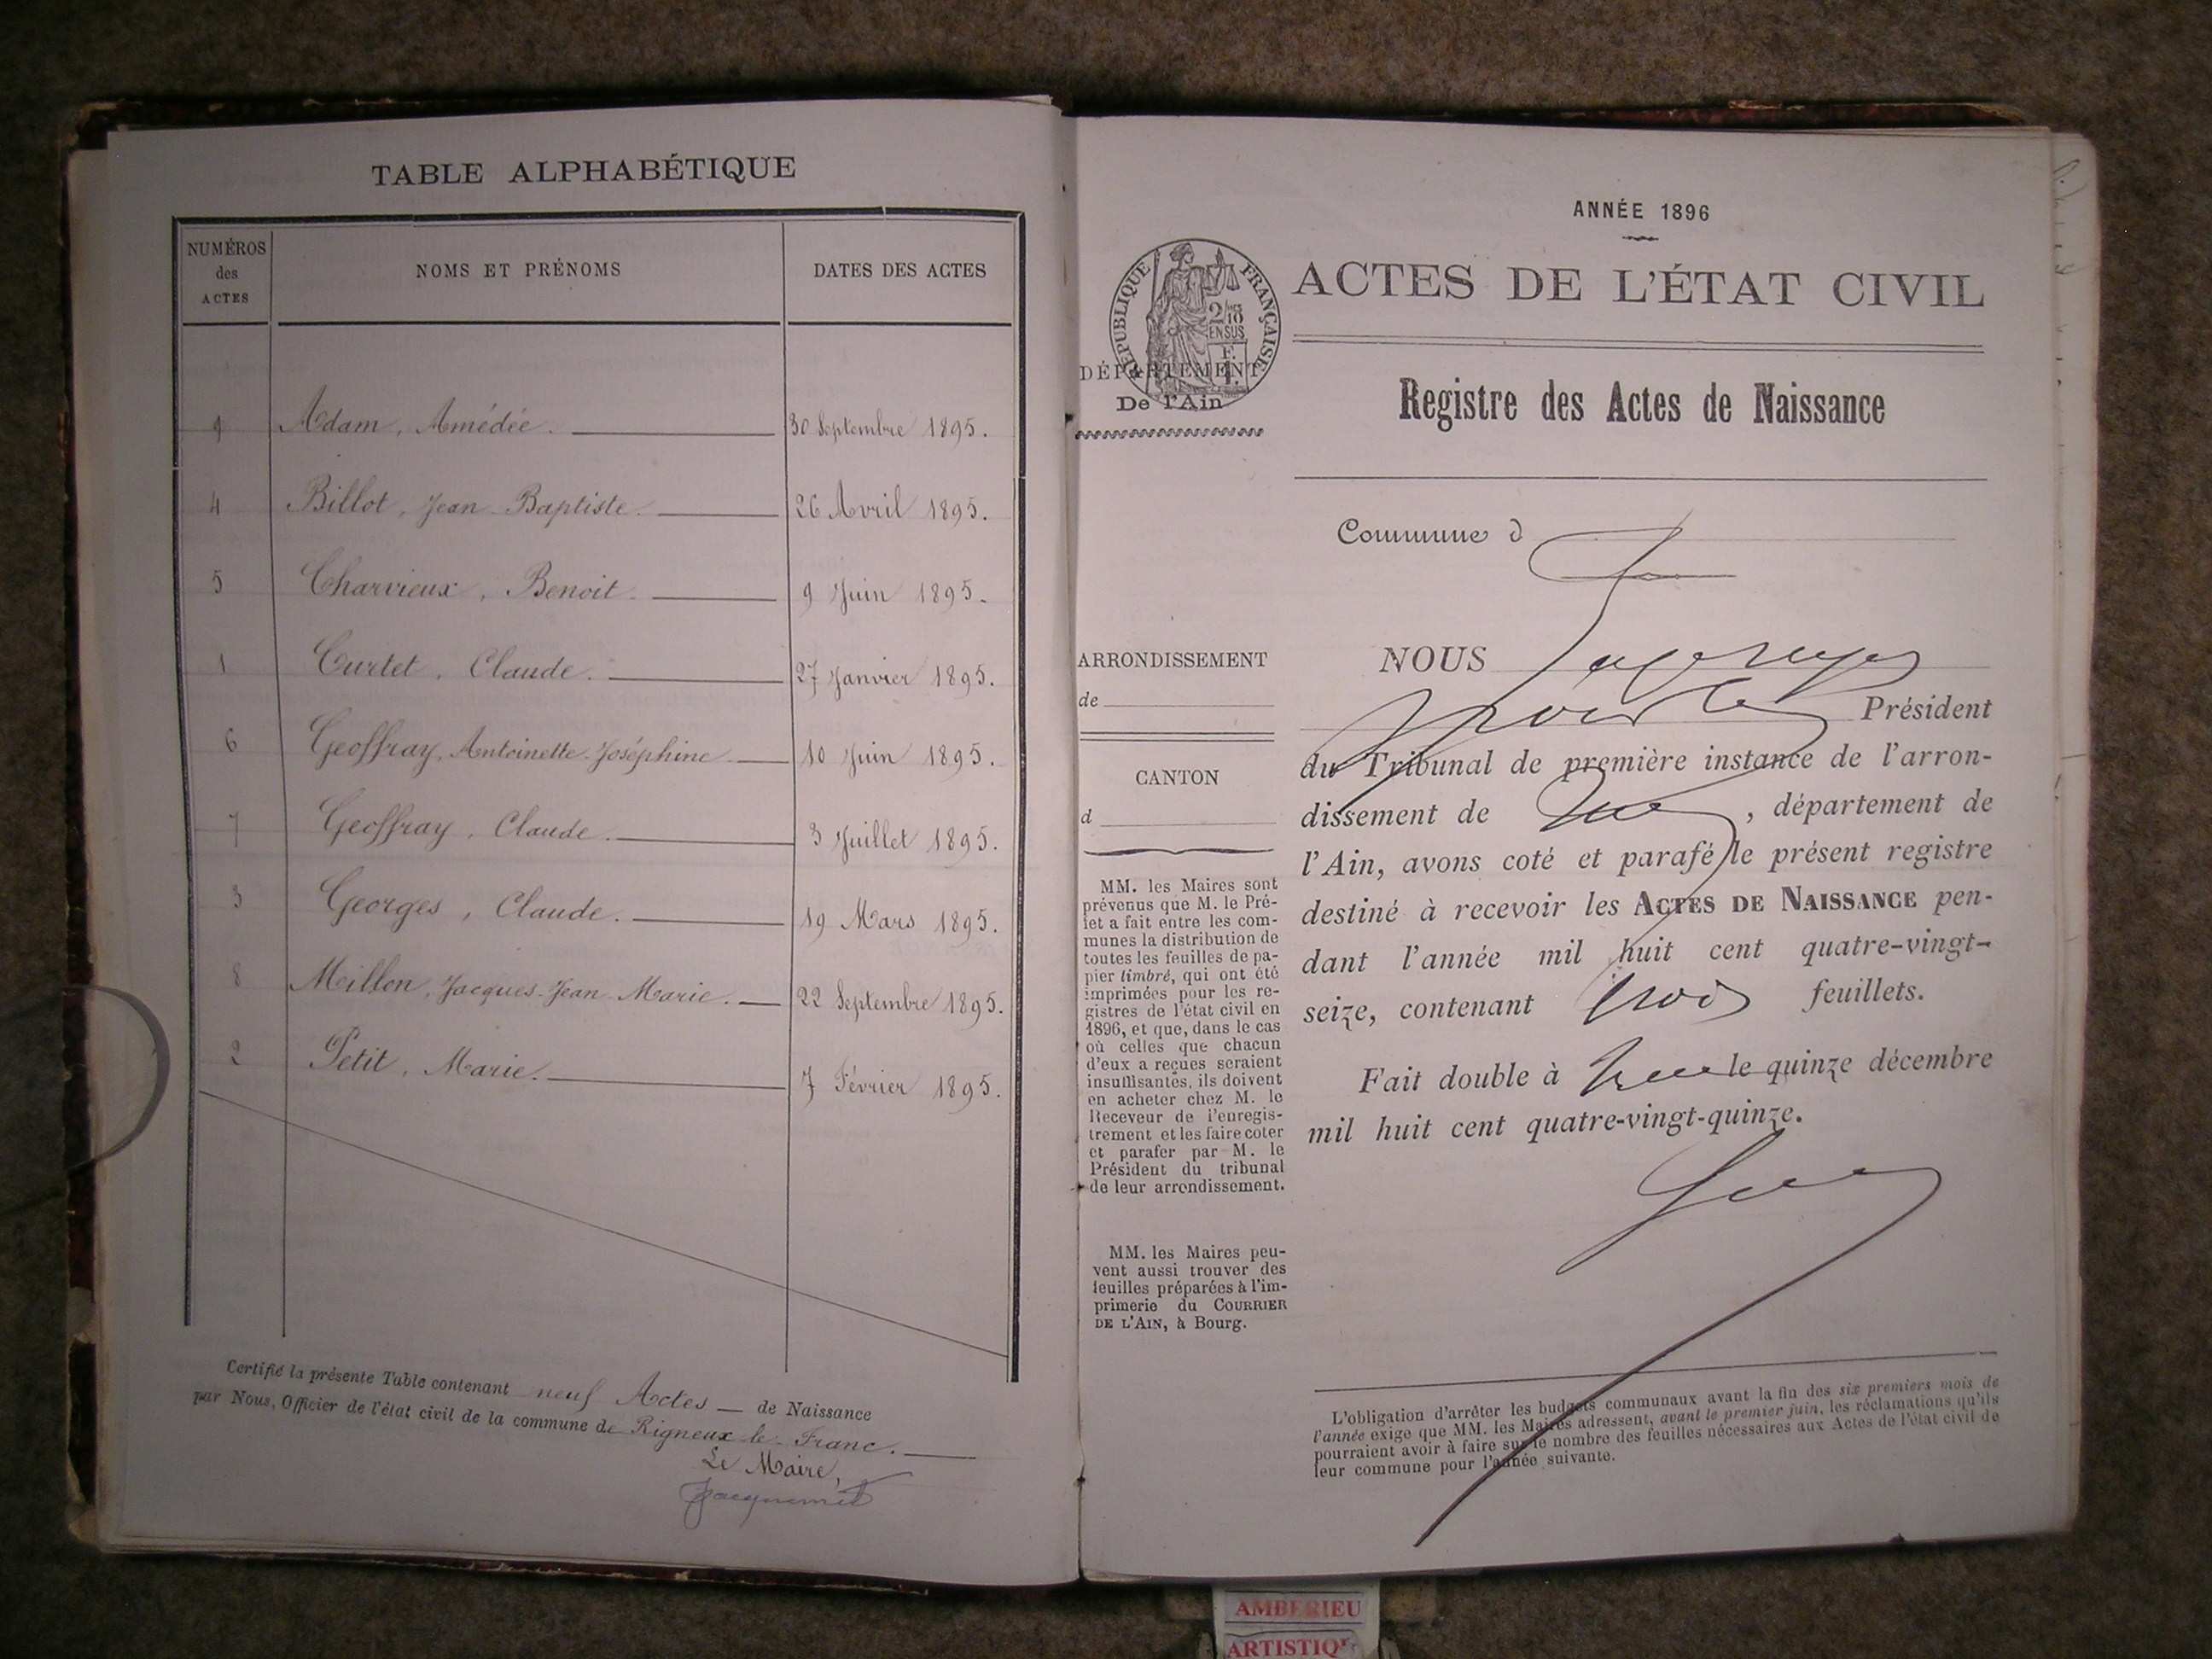 TABLE ALPHABÉTIQUE
NUMÉROS
des
ACTES
NOMS ET PRÉNOMS
DATES DES ACTES
9 Adam, Amédée. 30 Septembre 1895.
4 Billot, Jean-Baptiste. 26 Avril 1895.
5 Charvieux, Benoit. 9 Juin 1895.
1 Curtet, Claude. 27 Janvier 1895.
6 Geoffray, Antoinette-Joséphine 10 Juin 1895.
7 Geoffray, Claude. 3 Juillet 1895.
3 Georges, Claude. 19 Mars 1895.
8 Millon, Jacques-Jean-Marie. 22 Septembre 1895.
2 Petit, Marie. 7 Février 1895.
Certifié la présente Table contenant neuf Actes de Naissance
par Nous, Officier de l'état civil de la commune de Rigneux-le-Franc.
Le Maire,
Jacquemet
ANNÉE 1896
RÉPUBLIQUE FRANÇAISE
2/10
EN SUS
ACTES DE L'ÉTAT CIVIL
DÉPARTEMENT
De l'Ain
Registre des Actes de Naissance
Commune d
ARRONDISSEMENT
de
CANTON
d
MM. les Maires sont
prévenus que M. le Pré-
fet a fait entre les com-
munes la distribution de
toutes les feuilles de pa-
pier timbré, qui ont été
imprimées pour les re-
gistres de l'état civil en
1896, et que, dans le cas
où celles que chacun
d'eux a reçues seraient
insuffisantes, ils doivent
en acheter chez M. le
Receveur de l'enregis-
trement et les faire coter
et parafer par M. le
Président du tribunal
de leur arrondissement.
MM. les Maires peu-
vent aussi trouver des
feuilles préparées à l'im-
primerie du COURRIER
DE L'AIN, à Bourg.
NOUS
Président
du Tribunal de première instance de l'arron-
dissement de , département de
l'Ain, avons coté et parafé le présent registre
destiné à recevoir les ACTES DE NAISSANCE pen-
dant l'année mil huit cent quatre-vingt-
seize, contenant trois feuillets.
Fait double à le quinze décembre
mil huit cent quatre-vingt-quinze.
L'obligation d'arrêter les budgets communaux avant la fin des six premiers mois de
l'année exige que MM. les Maires adressent, avant le premier juin, les réclamations qu'ils
pourraient avoir à faire sur le nombre des feuilles nécessaires aux Actes de l'état civil de
leur commune pour l'année suivante.
AMBERIEU
ARTISTIQ